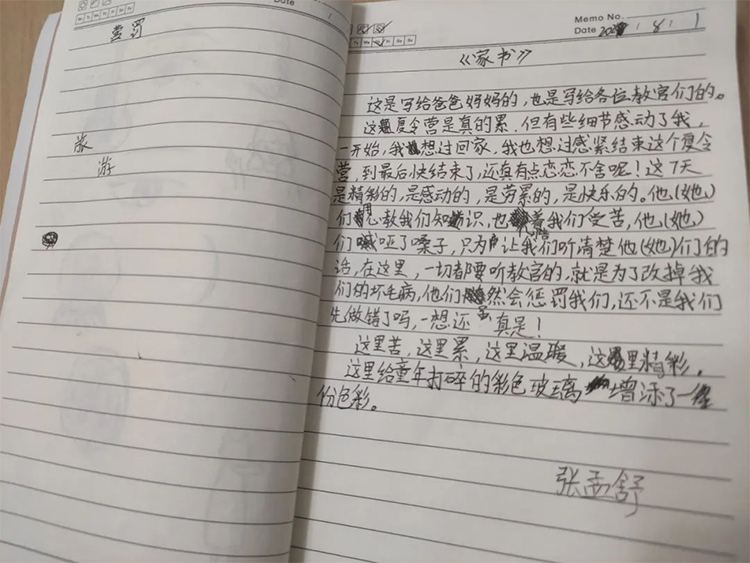 Date
营罚
浆
游
Memo No.
Date 8 1
《家书》
这是写给爸爸妈妈的，也是写给各位教官们的。
这夏令营是真的累，但有些细节感动了我，
一开始，我想过回家，我也想过感紧结束这个夏令
营，到最后快结束了，还真有点恋恋不舍呢！这7天
是精彩的，是感动的，是劳累的，是快乐的。他(她)
们心教我们知识，也着我们受苦，他(她)
们喊哑了嗓子，只为让我们听清楚他(她)们的
话，在这里，一切都要听教官的，就是为了改掉我
们的坏毛病，他们然会惩罚我们，还不是我们
先做错了吗，一想还真是！
这里苦，这里累，这里温暖，这里精彩，
这里给童年打碎的彩色玻璃增添了一
份色彩。
张孟舒